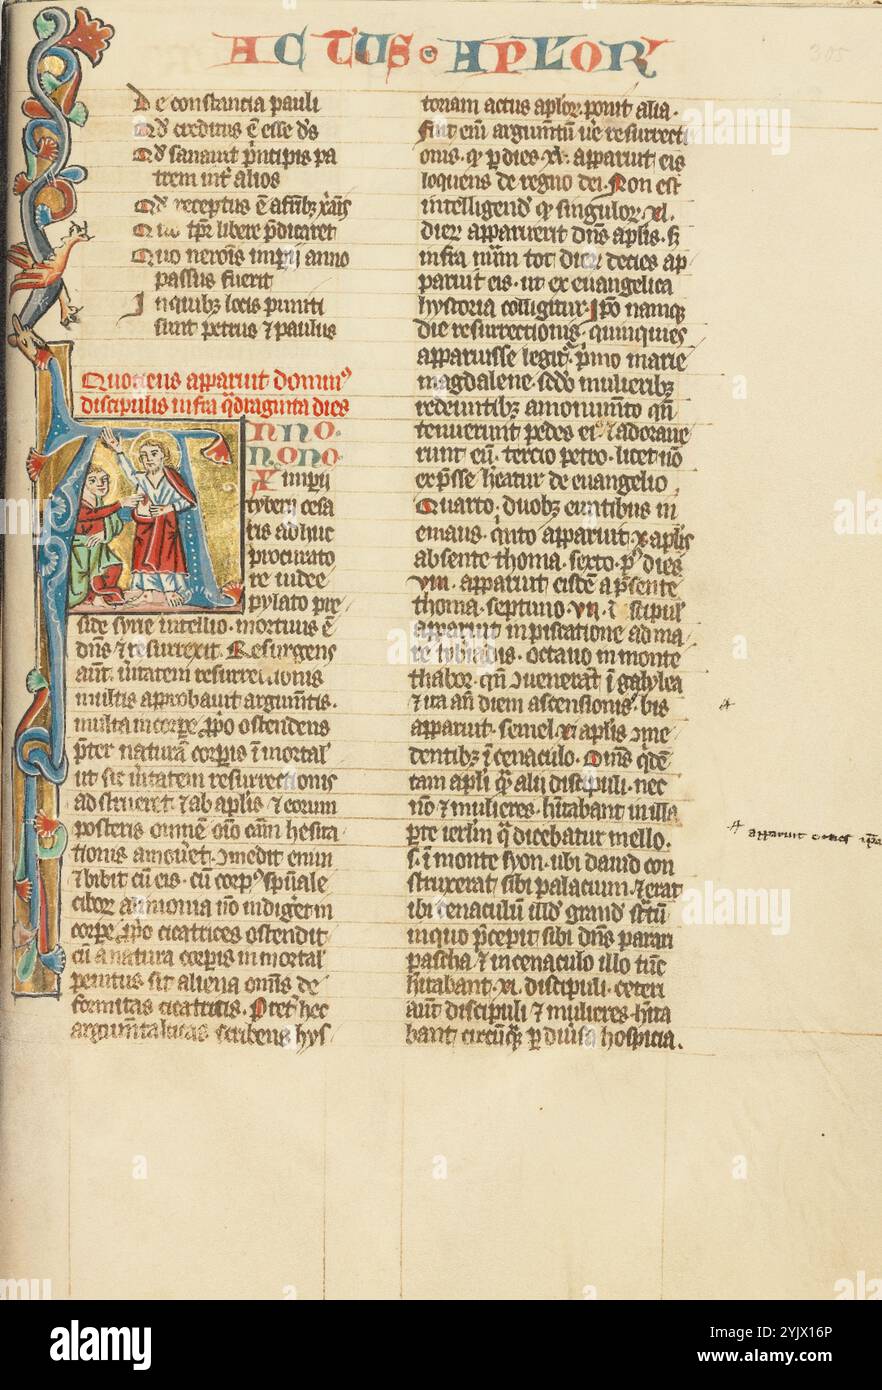 ACTUS · APL'OR'
305
De constancia pauli
Qd' creditus ē esse d's
Qd' sanavit p'ncipis pa
trem int' alios
Qd' receptus ē
libere p'dicaret
Quo neronis imp'ij anno
passus fuerit
In quib; locis puniti
sunt petrus ⁊ paulus
Quotiens apparuit domin'
discipulis infra q'draginta dies
ANNO·
NONO·
X imp'ij
tyberij cesa
ris adhuc
procurato
re iudee
pylato pre
side syrie vitellio· mortuus ē
d'ns ⁊ resurrexit. Resurgens
aut' v'itatem resurrectionis
multis approbavit argum'tis.
multa in corpe p'po ostendens
p'ter naturā corpis īmortal'
ut sic v'itatem resurrectionis
adstrueret ⁊ ab ap'lis ⁊ eorum
posteris omnē om'o cām hesita
tionis amov'et· Comedit enim
⁊ bibit cū eis· cū corp' sp'uale
cibor alimonia nō indig'et in
corpe p'po cicatrices ostendit
cū a natura corpis inmortal'
penitus sit aliena om'is de
formitas cicatricis. Pret' hec
argum'ta lucas scribens hys
toriam actus ap'lor· ponit alia·
Fuit ei' argum'tū ve resurrecti
onis· q' p dies ·xl· apparuit eis
loquens de regno dei· Non est
intelligend' q' singulor· xl·
dier apparuerit d'ns ap'lis· s'
infra num' tot dier decies ap
paruit eis· ut ex euangelica
hystoria colligitur· Ip'o namq;
die resurrectionis· quinquies
apparuisse legit'· p'mo marie
magdalene· sc'do mulierib;
redeuntib; a monum'to q'n
tenuerunt pedes ei' ⁊ adorave
runt eū· tercio petro· licet nō
exp'sse h'eatur de euangelio
Quarto· duob; euntibus in
emaus· q'nto apparuit x ap'lis
absente thoma· sexto· p' dies
VIII· apparuit eisdē ap'sente
thoma· septimo· VII· discipul'
apparuit in piscatione ad ma
re tyb'iadis· octavo in monte
thabor· q'n 9venerāt ī galylea
⁊ ita an' diem ascensionis· bis
apparuit· semel· xi ap'lis 9me
dentib; ī cenaculo· Om's q'dē
tam ap'li q' alij discipuli· nec
nō ⁊ mulieres· h'itabant in illa
p'te ier'lm q' dicebatur mello·
s· ī monte syon· ubi david con
struxerat sibi palacium· ⁊ erat
ibi cenaculū ill'd grand' st'tū
in quo p'cepit sibi d'ns parari
pascha ⁊ in cenaculo illo tūc
h'itabant ·xi· discipuli· ceteri
aut discipuli ⁊ mulieres· h'ita
bant circūq; p div'sa hospicia.
apparuit
alamy
Image ID: 2YJX16P
www.alamy.com